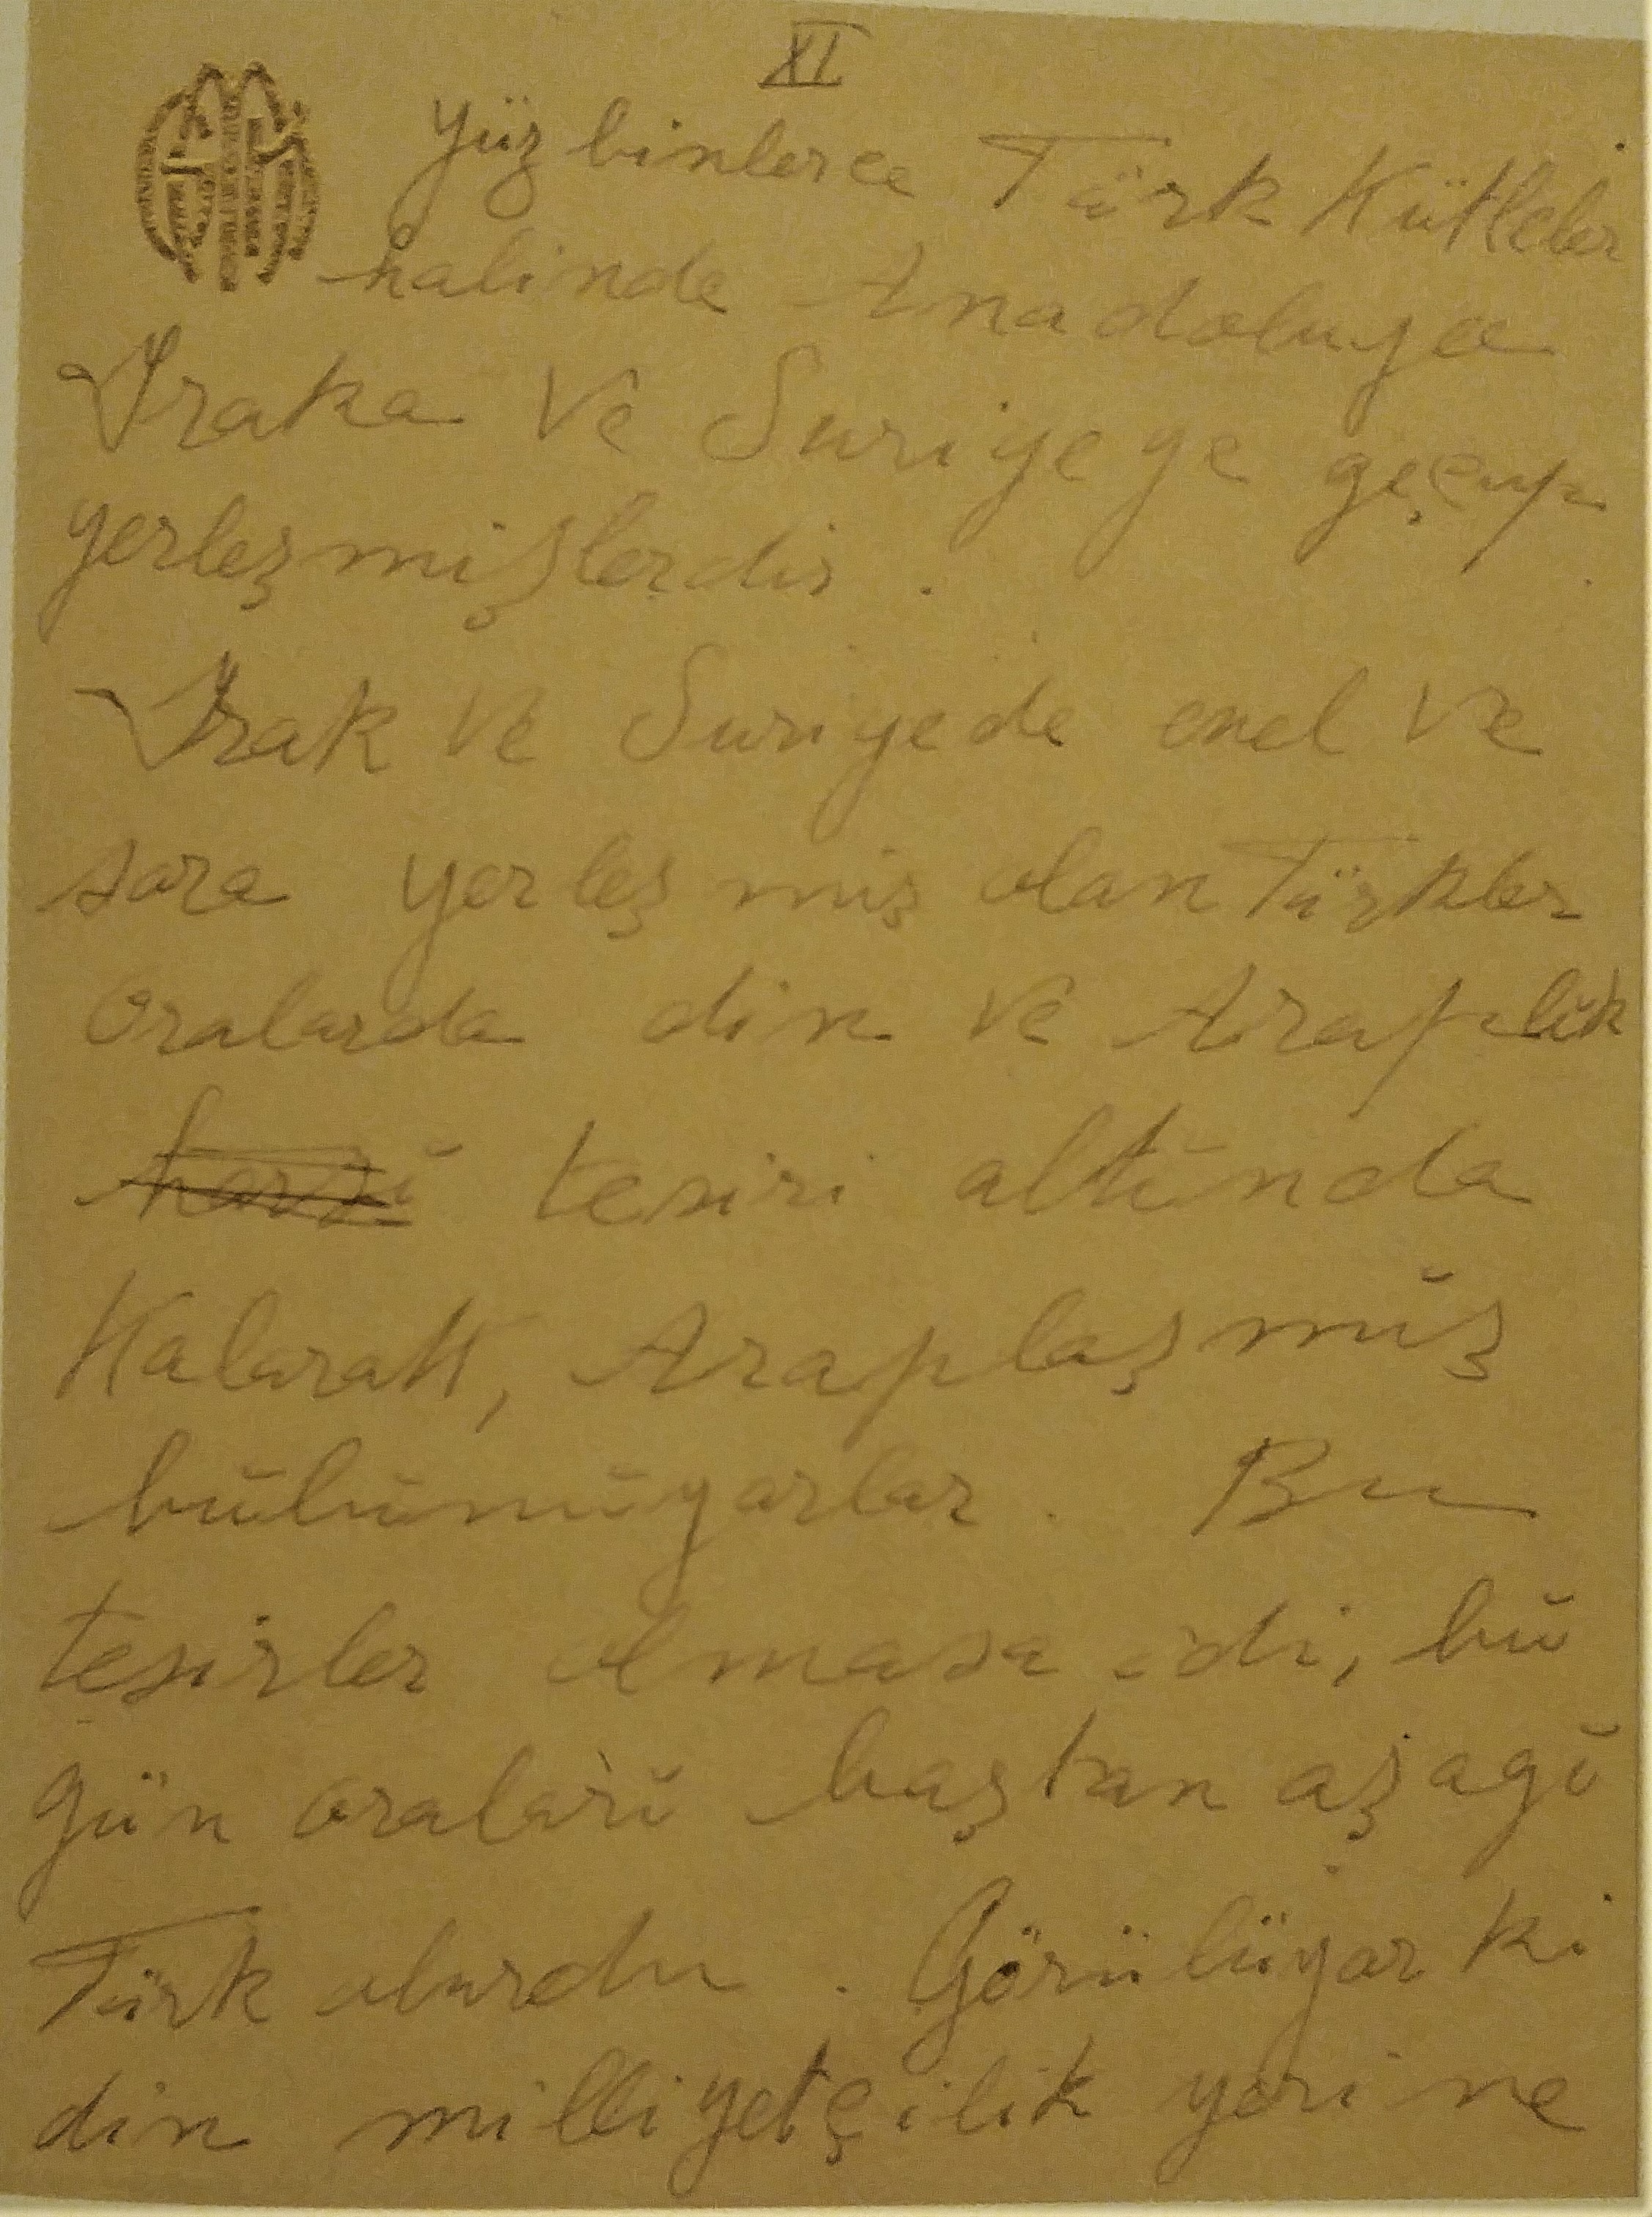 XI
Yüz binlerce Türk Kütleler
halinde Anadoluya
Iraka ve Suriyeye geçup
yerleşmişlerdir.
Irak ve Suriyede evel ve
sora yerleşmiş olan Türkler
oralarda din ve Araplĭk
tesiri altĭnda
Kalarak, Araplaşmĭş
bŭlŭnŭyorlar. Bu
tesirler olmasa idi, bŭ
gün oralarĭ baştan aşagĭ
Türk olurdu. Görülüyor ki
din milliyetçilik yerine